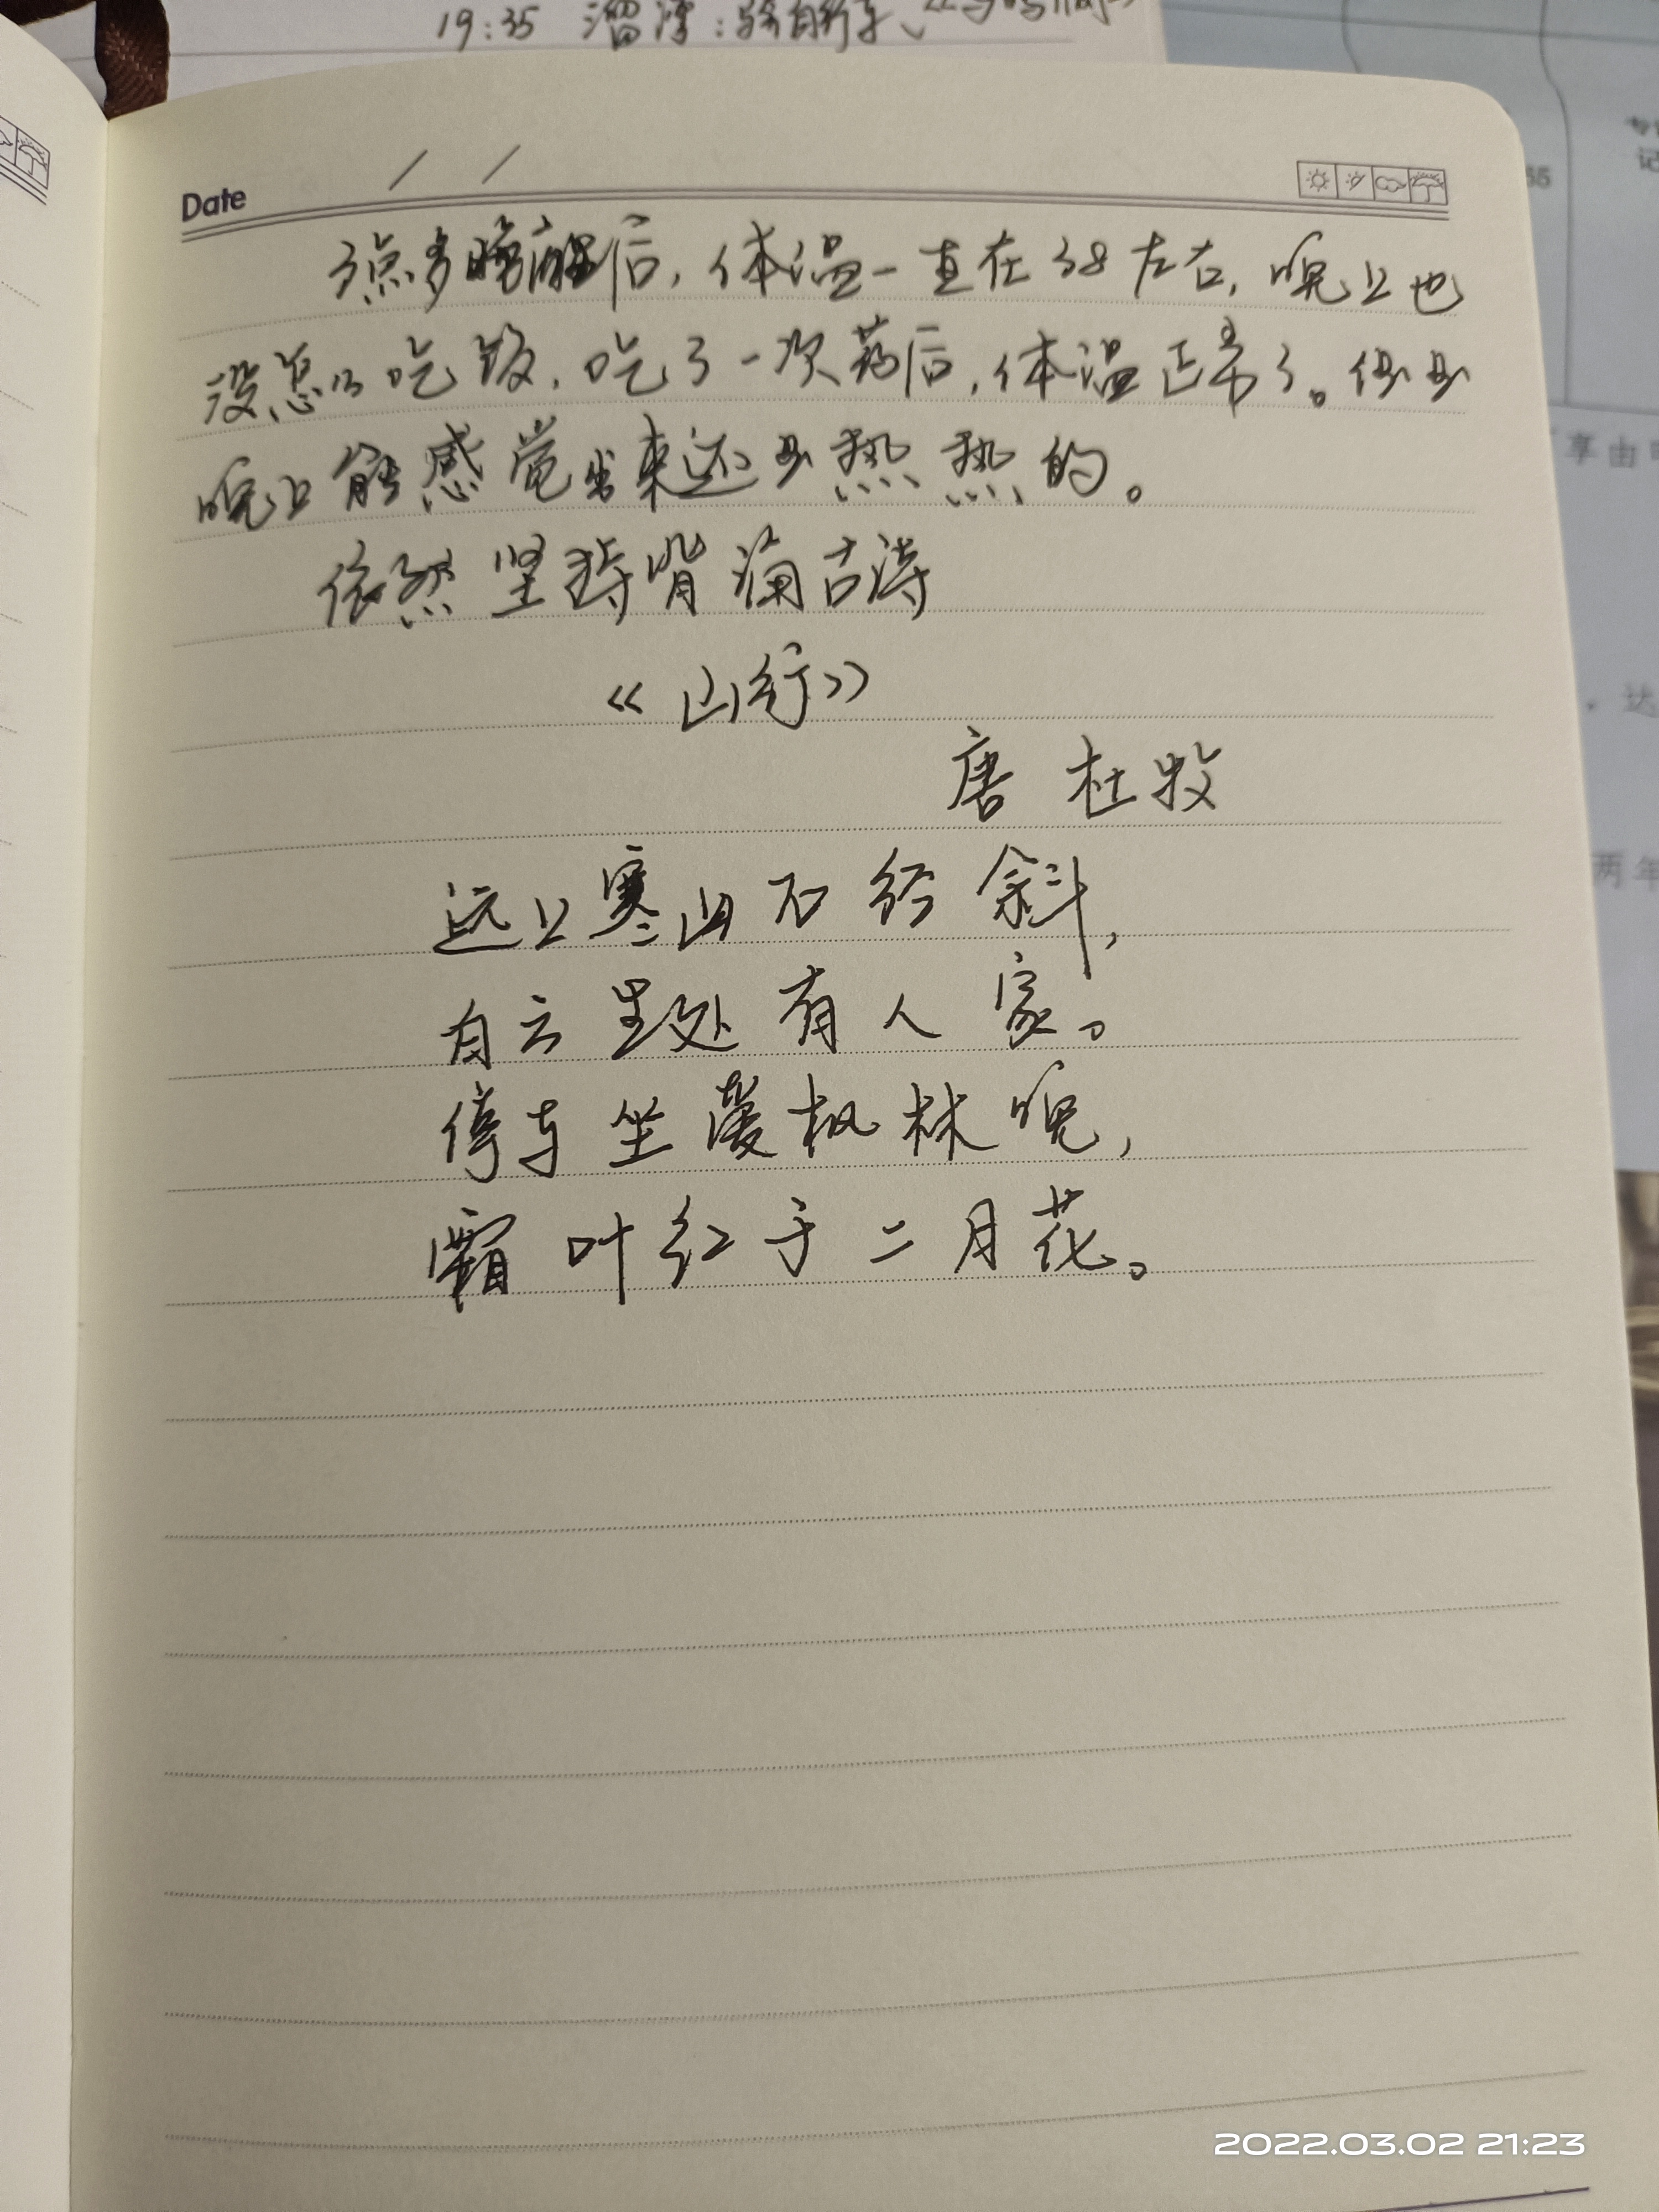 19:35 溜溜:骑自行车、
Date / /
3点多睡醒后,体温一直在38左右,晚上也
没怎么吃饭,吃了一次药后,体温正常了。但是
晚上能感觉出来还是热热的。
依然坚持背诵古诗
《山行》
唐 杜牧
远上寒山石径斜,
白云生处有人家。
停车坐爱枫林晚,
霜叶红于二月花。
享由
,达
两年
2022.03.02 21:23